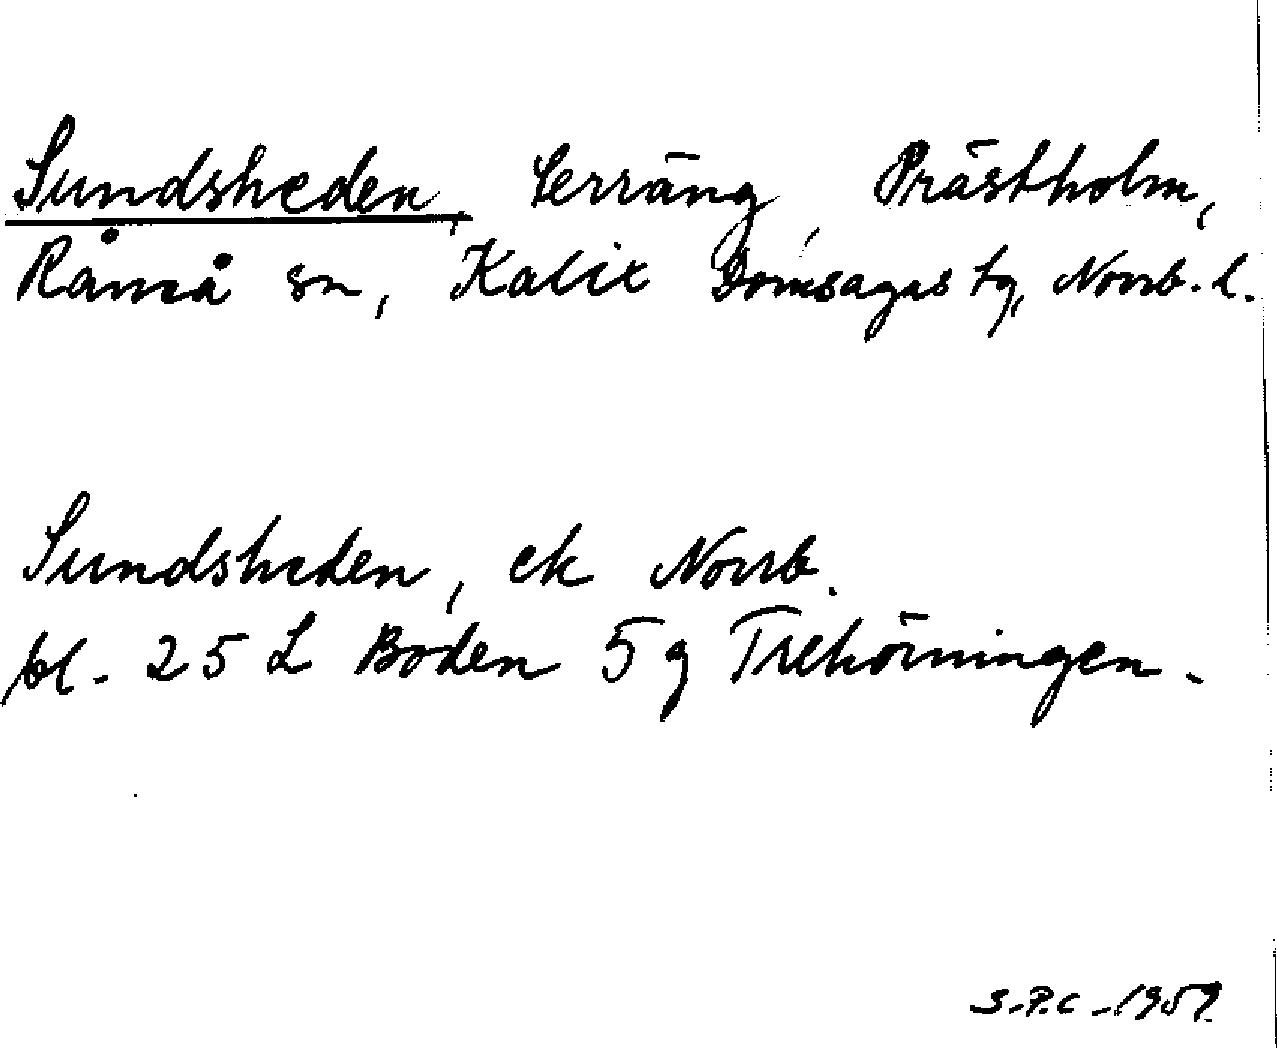 Sundsheden, terräng, Prästholm,
Råneå sn, Kalix Domsagas tg, Norrb. l.
Sundsheden, ek Norrb.
bl. 25 L Boden 5 g Trehörningen.
S.P.C - 1959